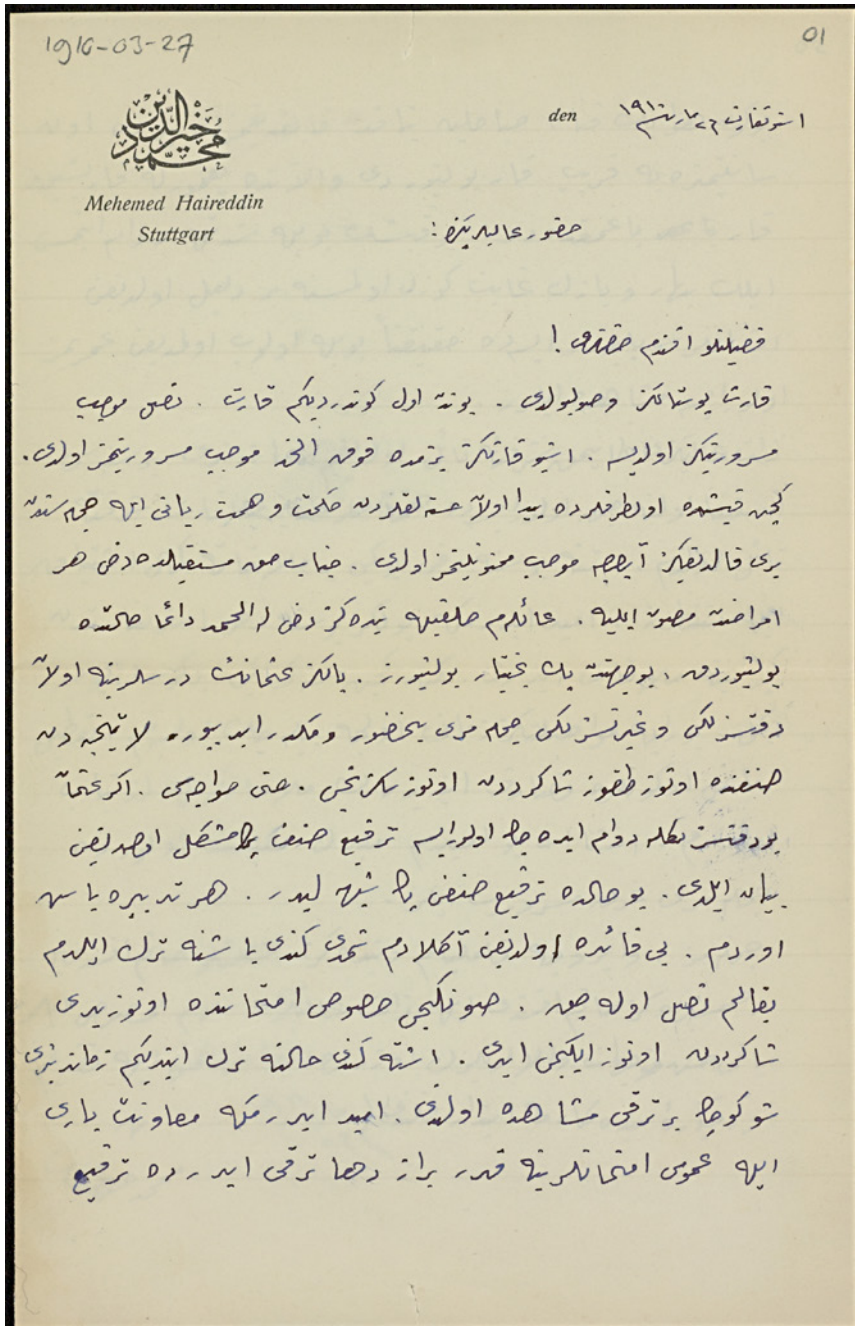 1910-03-27
01
محمد خير الدين
Mehemed Haireddin
Stuttgart
den
استوتغارت ٢٦ مارت ١٩١٠
حضور عاليلرينه :
فضيلتلو افندم حضرتلرى !
قارت پوستالكز وصولبولدى . بوندن اول كوندرديكم قارت . نصل موجب
مسروريتكز اولديسه . اشبو قارتكز بزمده فوق الحد موجب مسروريتمز اولدى .
كچن قيشده اولطرفلرده پيدا اولان خسته لقلردن حكمت و همت ربانى ايله جمله سندن
برى قالديغكز آيريجه موجب ممنونيتمز اولدى . جناب حق مستقبلده دخى هر
امراضدن مصون ايليه . عائله م خلقيله بنده كز دخى لله الحمد دائما صحتده
بولنيوردق ، بوجهتدن پك بختيار بولنيورز . يالكز عثمانك درسلرينه اولان
دقتسزلكى و غيرتسزلكى جمله مزى بيحضور و مكدر ايدييور . لاتينجه دن
صنفنده اوتوز طقوز شاكرددن اوتوز سكزنجى . حتى خواجه سى . اكر عثمان
بودقتسزلكله دوام ايده جك اولورايسه ترفيع صنف پك مشكل اوله جغنى
بيان ايلدى . بو حالده ترفيع صنفى پك شبهه ليدر . هر تدبيره باش
اوردم . بى فائده اولديغنى آكلادم شمدى كندى باشنه ترك ايلدم
بقالم نصل اوله جق . صونكنجى خصوصى امتحاننده اوتوز برى
شاكرددن اوتوز ايكنجى ايدى . اشته كندى حالنه ترك ايتديكم زماندنبرى
شو كوچك بر ترقى مشاهده اولندى . اميد ايدرمكه معاونت بارى
ايله عمومى امتحانلرينه قدر براز دها ترقى ايدرده ترفيع